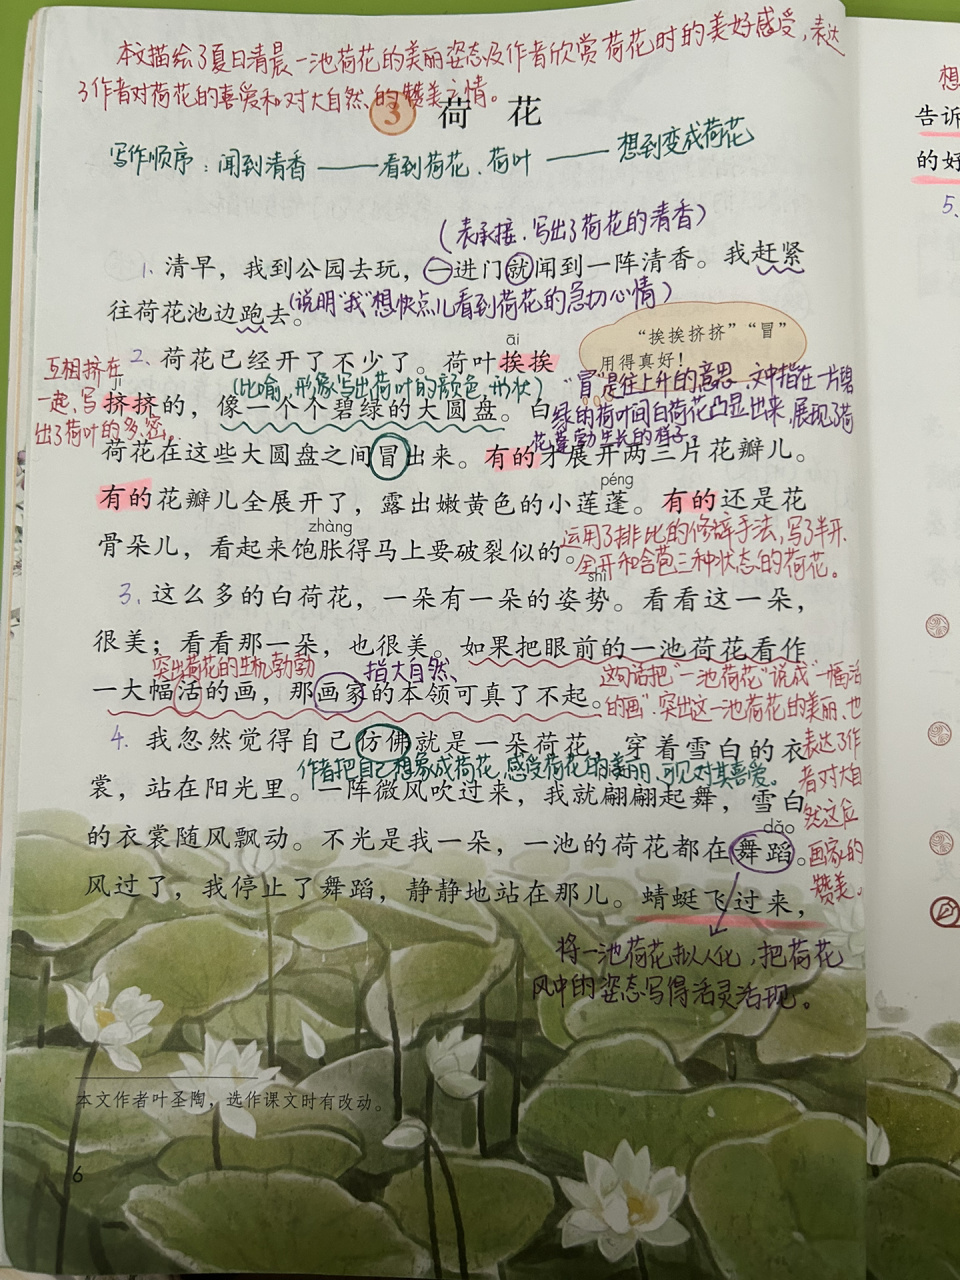 本文描绘了夏日清晨一池荷花的美丽姿态及作者欣赏荷花时的美好感受,表达
了作者对荷花的喜爱和对大自然的赞美之情。
3 荷花
写作顺序:闻到清香——看到荷花、荷叶——想到变成荷花
(表承接,写出了荷花的清香)
1. 清早,我到公园去玩,一进门就闻到一阵清香。我赶紧
往荷花池边跑去。
(说明“我”想快点儿看到荷花的急切心情)
“挨挨挤挤”“冒”
用得真好!
āi
2. 荷花已经开了不少了。荷叶挨挨
互相挤在
一起,写
出了荷叶的多,密。
(比喻,形象写出荷叶的颜色,形状)
“冒”是往上升的意思,文中指在一片碧
绿的荷叶间白荷花凸显出来,展现了荷
花蓬勃生长的样子。
jǐ
挤挤的,像一个个碧绿的大圆盘。白
荷花在这些大圆盘之间冒出来。有的才展开两三片花瓣儿。
péng
有的花瓣儿全展开了,露出嫩黄色的小莲蓬。有的还是花
zhàng
骨朵儿,看起来饱胀得马上要破裂似的。
运用了排比的修辞手法,写了半开、
全开和含苞三种状态的荷花。
shì
3. 这么多的白荷花,一朵有一朵的姿势。看看这一朵,
很美;看看那一朵,也很美。如果把眼前的一池荷花看作
突出荷花的生机勃勃
指大自然、
一大幅活的画,那画家的本领可真了不起。
这句话把“一池荷花”说成“一幅活
的画”,突出这一池荷花的美丽、也
表达了作
者对大自
然这位
画家的
赞美。
4. 我忽然觉得自己仿佛就是一朵荷花,穿着雪白的衣
作者把自己想象成荷花,感受荷花的美丽、可见对其喜爱。
裳,站在阳光里。一阵微风吹过来,我就翩翩起舞,雪白
dǎo
的衣裳随风飘动。不光是我一朵,一池的荷花都在舞蹈。
风过了,我停止了舞蹈,静静地站在那儿。蜻蜓飞过来,
将一池荷花拟人化,把荷花
风中的姿态写得活灵活现。
本文作者叶圣陶,选作课文时有改动。
6
想
告诉
的好
5、